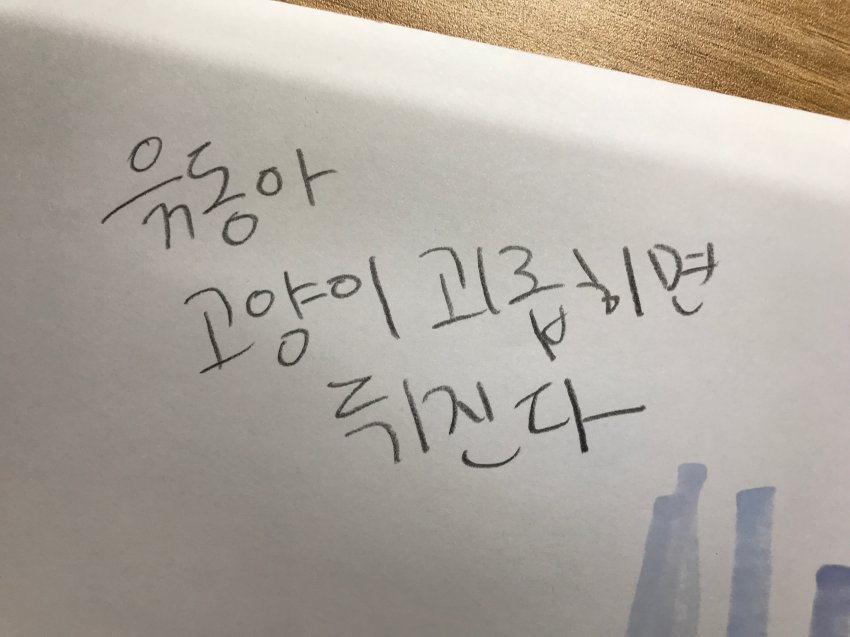 윾동아
고양이 괴롭히면
뒤진다